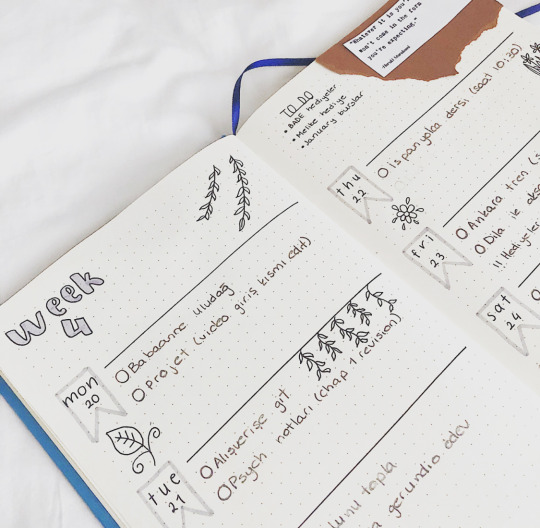 week
4
mon
20
O Babaanne uludağ
O Projet (video giriş kısmı edit)
tue
21
O Alışverişe git
O Psych notları (chap 1 revision)
topla
gerundio ödev
"Whatever it is you're
won't come in the form
you're expecting."
TO DO
• BADE hediyeler
• Melike hediye
• January burslar
thu
22
O ispanyolca dersi (saat 10:30)
fri
23
O Ankara tren
O Dila ile
!! Hediyeler
sat
24
O